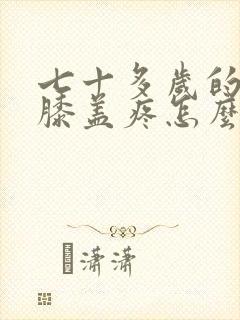 七十多歲的
膝盖疼怎麼
潇潇